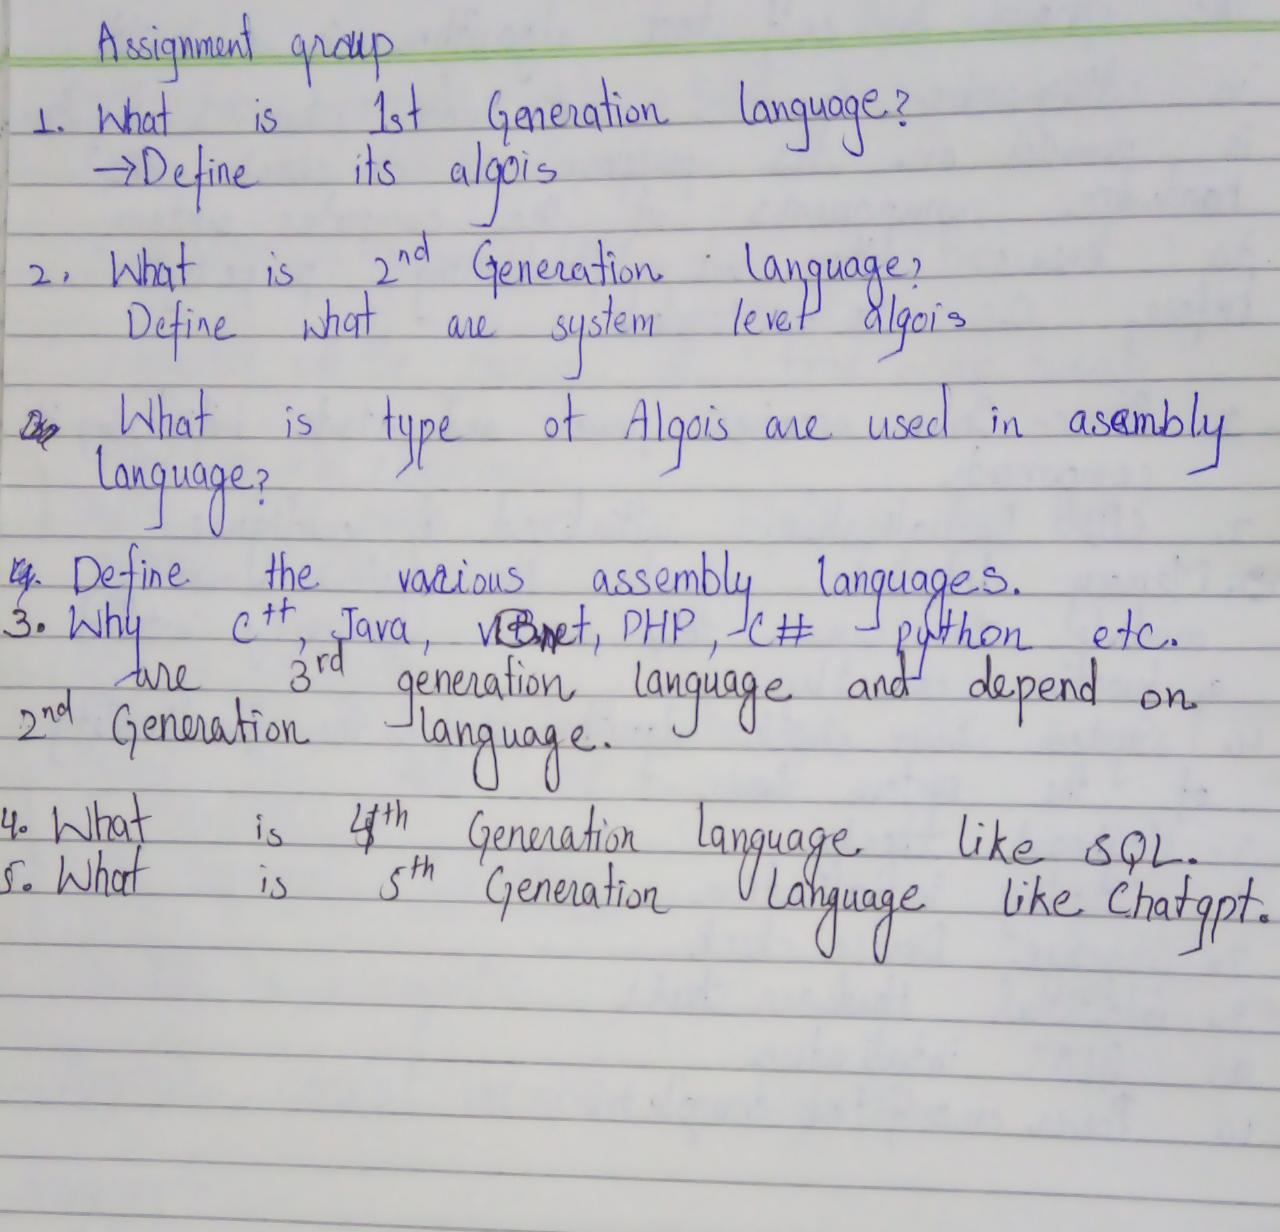 Assignment group
1. What is 1st Generation language?
→Define its algois
2. What is 2nd Generation language?
Define what are system level algois
What is type of Algois are used in asembly
language?
Define the various assembly languages.
3. Why C++, Java, VBnet, PHP, C# python etc.
are 3rd generation language and depend on
2nd Generation language.
4. What is 4th Generation language like SQL.
5. What is 5th Generation Language like Chatgpt.